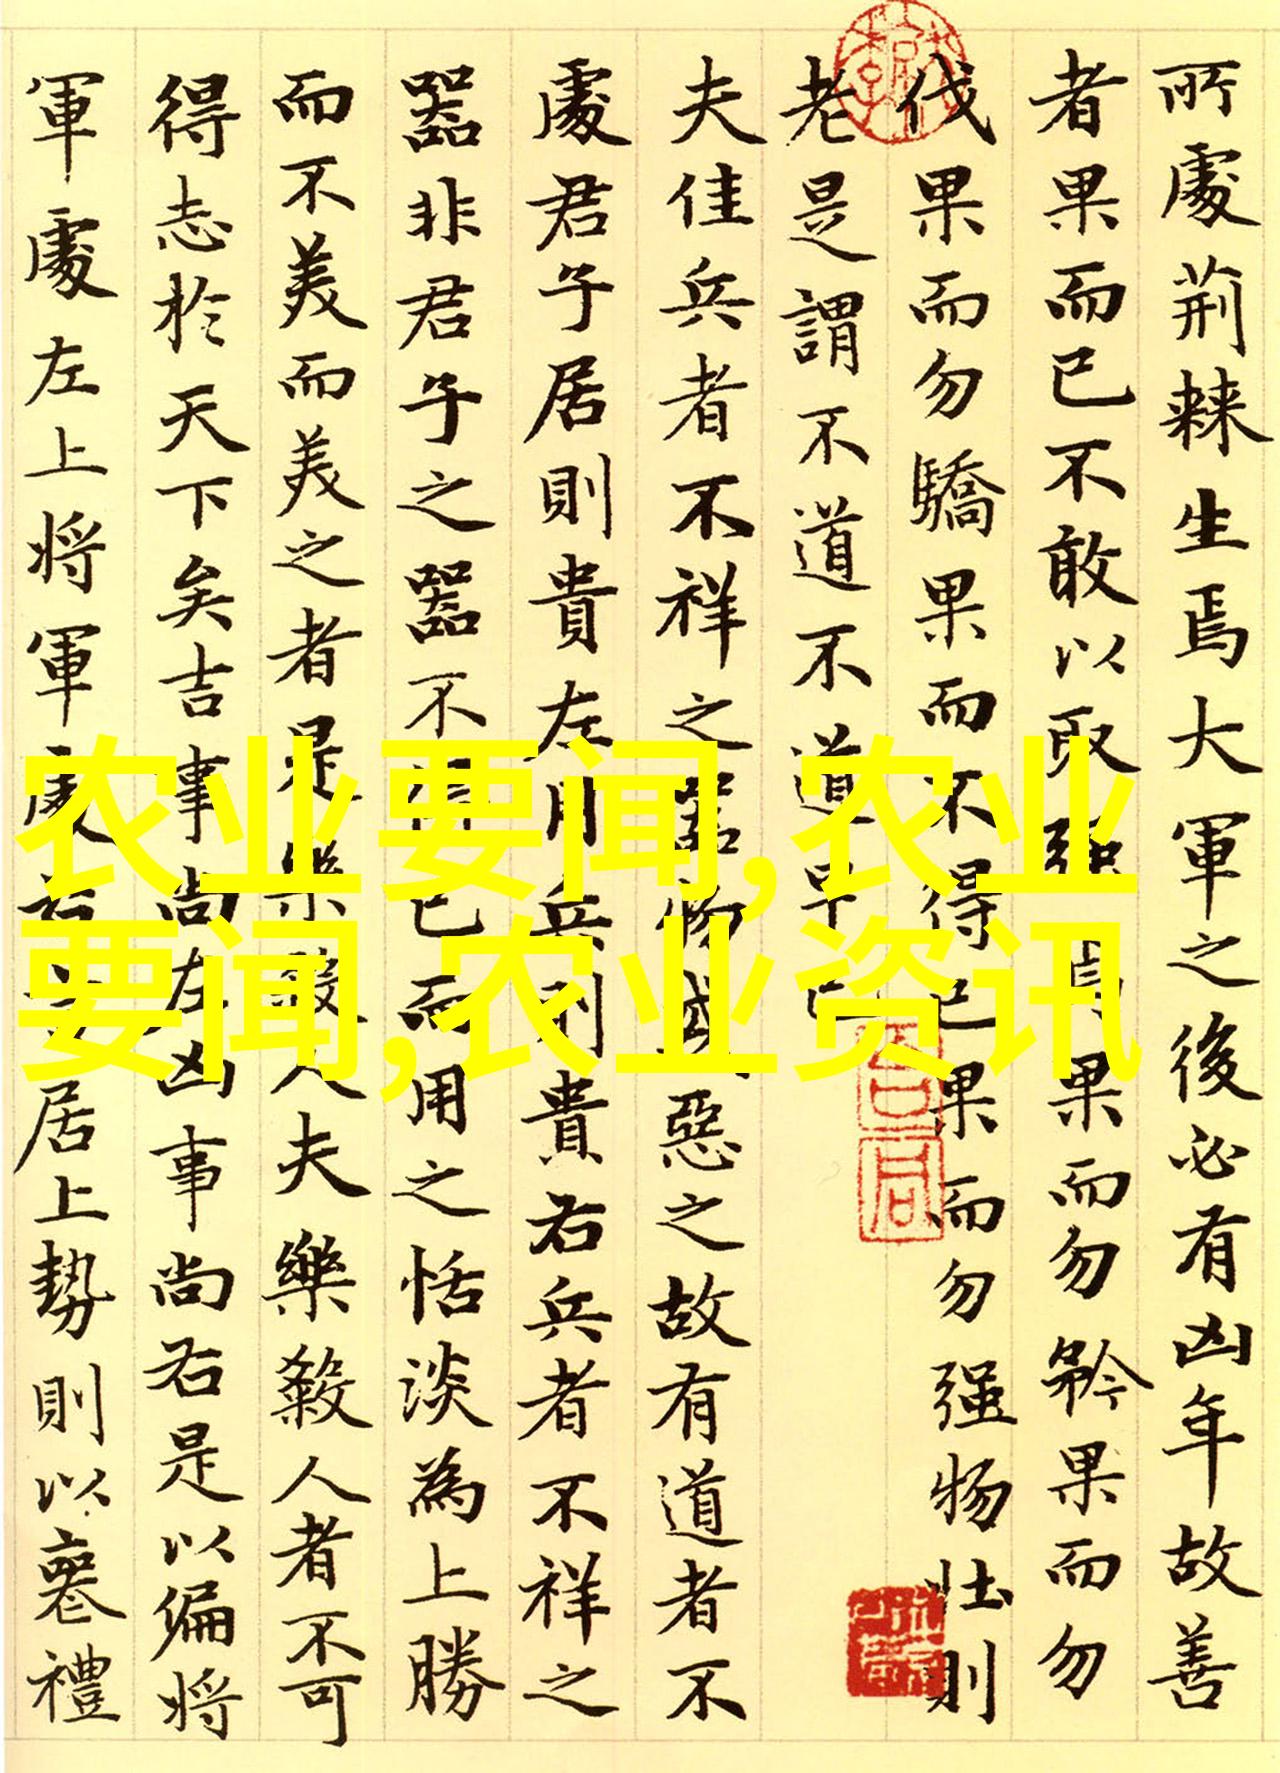 所處荊棘生焉大軍之後必有凶年故善
者果而已不敢以取強焉果而勿矜果而勿
伐果而勿驕果而不得已果而勿强物壮則
老是謂不道不道早已
夫佳兵者不祥之器物或惡之故有道者不
處君子居則貴左用兵則貴右兵者不祥之
器非君子之器不得已而用之恬淡為上勝
而不美而美之者是樂殺人夫樂殺人者不可
得志於天下矣吉事尚左凶事尚右是以偏將
軍處左上将軍處右言居上勢則以喪禮
农业要闻,农业
要闻,农业资讯